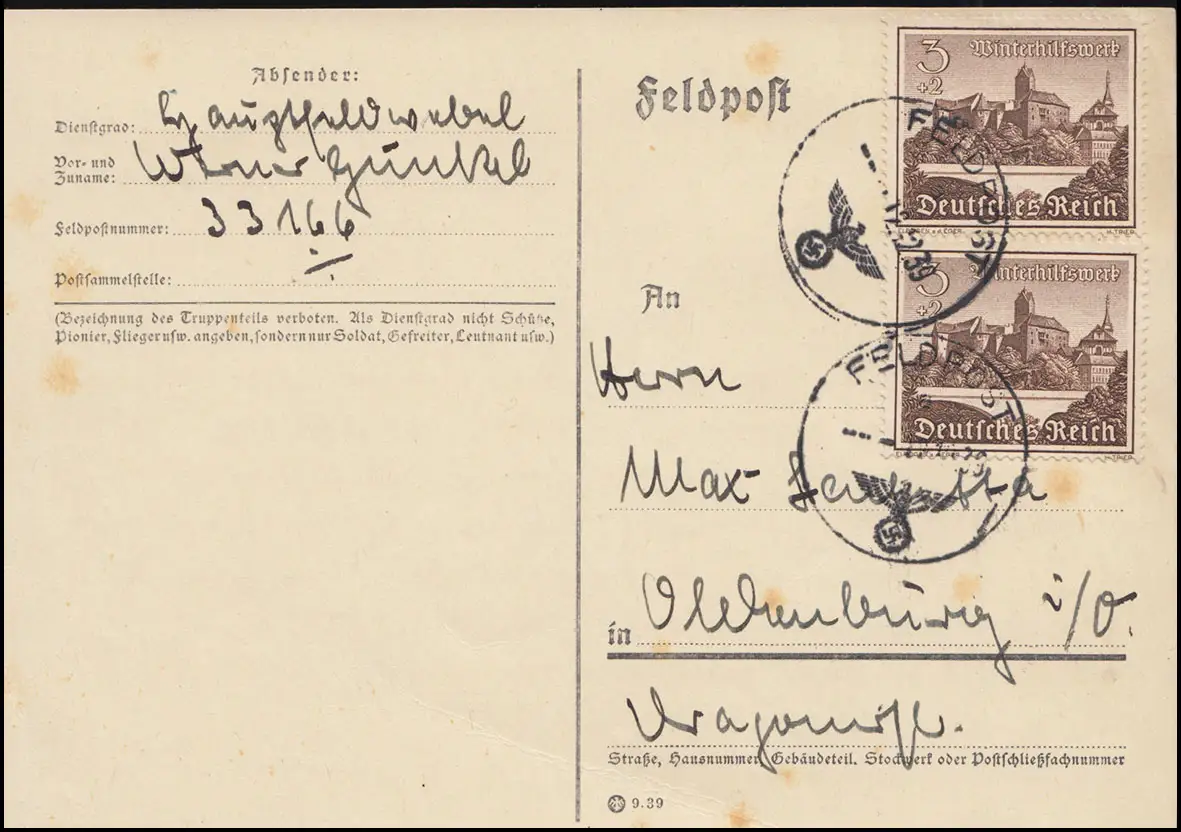 Absender:
Dienstgrad: Hauptfeldwebel
Vor- und
Zuname: Werner Künkel
Feldpostnummer: 33166
Postsammelstelle:
(Bezeichnung des Truppenteils verboten. Als Dienstgrad nicht Schütze,
Pionier, Flieger usw. angeben, sondern nur Soldat, Gefreiter, Leutnant usw.)
Feldpost
3 Winterhilfswerk
+2
Deutsches Reich
ELBOGEN a.d. EGER M.TRIER
FELDPOST
12.39
3 Winterhilfswerk
+2
Deutsches Reich
ELBOGEN a.d. EGER M.TRIER
FELDPOST
An
Herrn
Max
in Oldenburg i/O.
Dragonerstr.
Straße, Hausnummer, Gebäudeteil, Stockwerk oder Postschließfachnummer
9.39